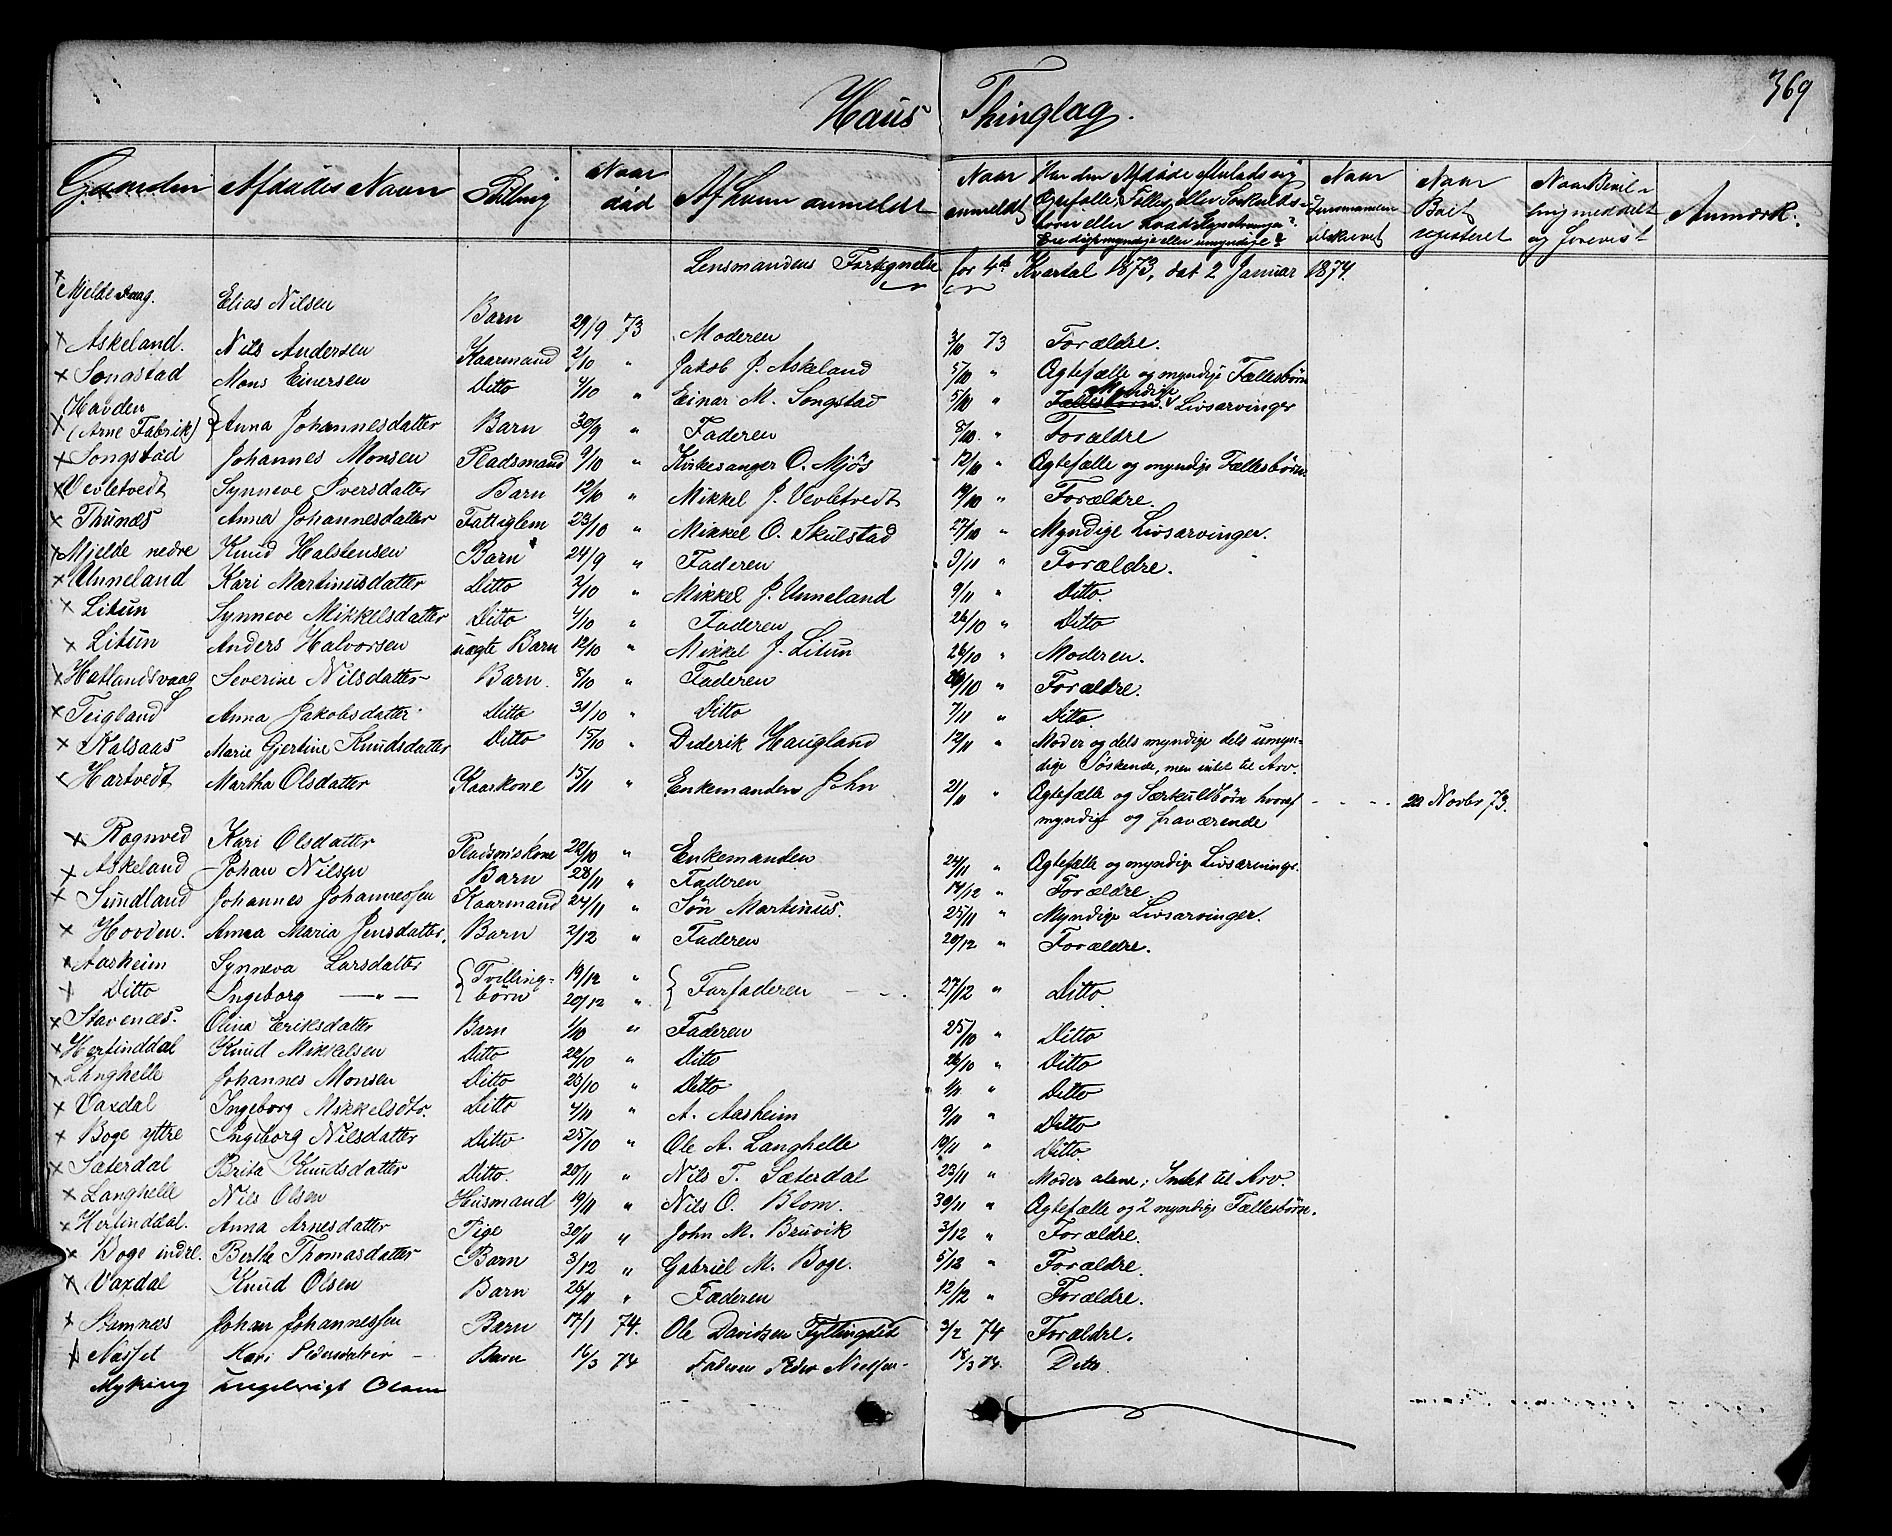 369
Haus Thinglag.
Gaarden Afdødes Navn Stilling Naar død Af hvem anmeldt Naar anmeldt Har den Afdøde efterladt sig Ægtefælle, Fælles eller Særkulds- børn eller andre Livsarvinger? Ere disse myndige eller umyndige? Naar Boet registeret Naar Bevil- ling meddelt og forevist Anmærk.
Lensmandens Fortegnelse for 4de Kvartal 1873, dat 2 Januar 1874.
x Mjeldevaag. Elias Nilsen Barn 29/9 73 Moderen 3/10 73 Forældre.
x Askeland. Nils Andersen Kaarmand 2/10 " Jakob J. Askeland 5/10 " Ægtefælle og myndige Fællesbørn
x Songstad Mons Einersen Ditto 4/10 " Einar M. Songstad 5/10 " Fællesbørn. Myndige Livsarvinger
x Havden (Arne Fabrik) Anna Johannesdatter Barn 30/9 " Faderen 8/10 " Forældre
x Songstad Johannes Monsen Pladsmand 9/10 " Kirkesanger O. Mjøs 12/10 " Ægtefælle og myndige Fællesbørn
x Vevletvedt Synneve Iversdatter Barn 12/10 " Mikkel J. Vevletvedt 19/10 " Forældre.
x Thunæs Anna Johannesdatter Fattiglem 23/10 " Mikkel O. Skulstad 27/10 " Myndige Livsarvinger.
x Mjelde nedre Knud Halstensen Barn 24/9 " Faderen 9/11 " Forældre.
x Unneland Kari Martinusdatter Ditto 2/10 " Mikkel J. Unneland 9/11 " Ditto
x Litun Synneve Mikkelsdatter Ditto 4/10 " Faderen 26/10 " Ditto
x Litun Anders Halvorsen uægte Barn 12/10 " Mikkel J. Litun 26/10 " Moderen.
x Hatlandsvaag Severine Nilsdatter Barn 8/10 " Faderen 26/10 " Forældre.
x Teigland Anna Jakobsdatter Ditto 31/10 " Ditto 7/11 " Ditto
x Kalsaas Marie Gjertine Knudsdatter Ditto 15/10 " Diderik Haugland 12/11 " Moder og dels myndige dels umyn-
dige Søskende, men intet til Arv.
x Hartvedt Martha Olsdatter Kaarkone 15/11 " Enkemanden John 21/11 " Ægtefælle og Særkulsbørn hvoraf - - - - 22 Novbr 73.
myndige og fraværende
x Rognved Kari Olsdatter Pladsmskone 22/10 " Enkemanden 24/11 " Ægtefælle og myndige Livsarvinge.
x Askeland Johan Nilsen Barn 28/11 " Faderen 14/12 " Forældre.
x Sundland Johannes Johannessen Kaarmand 24/11 " Søn Martinus. 25/11 " Myndige Livsarvinger.
x Hovden. Anna Maria Jensdatter. Barn 2/12 " Faderen 20/12 " Forældre.
x Aasheim Synneva Larsdatter Tvilling- 19/12 "
x Ditto Ingeborg — " — børn 20/12 " Farfaderen - - . 27/12 " Ditto
x Stavenæs. Olina Eriksdatter Barn 1/10 " Faderen 25/10 " Ditto
x Herlinddal Knud Mikkelsen Ditto 22/10 " Ditto 26/10 " Ditto
x Langhelle Johannes Monsen Ditto 23/10 " Ditto 1/11 " Ditto
x Vaxdal Ingeborg Mikkelsdtr. Ditto 4/11 " A. Aasheim 9/11 " Ditto
x Boge yttre Ingeborg Nilsdatter Ditto 25/10 " Ole A. Langhelle 19/11 " Ditto
x Sæterdal Brita Knudsdatter Ditto. 20/11 " Nils T. Sæterdal 23/11 " Moder alene; Intet til Arv.
x Langhelle Nils Olsen Husmand 19/11 " Nils O. Blom. 30/11 " Ægtefælle og 2 myndige Fællesbørn.
x Herlinddal. Anna Arnesdatter Pige 30/11 " John M. Bruvik 3/12 " Forældre.
x Boge indre. Berthe Thomasdatter Barn 3/12 " Gabriel M. Boge. 5/12 " Forældre.
x Vaxdal Knud Olsen Barn 26/11 " Faderen 12/12 " Forældre.
x Stamnæs Johan Johannessen Barn 17/1 74. Ole Davidsen Fyllingslid 3/2 74 Forældre.
x Nasset Kari Pedersdatter - Barn 16/3 74 Faderen Peder Nielsen - 18/3 74. Ditto
Myking Engelbrigt Olsen